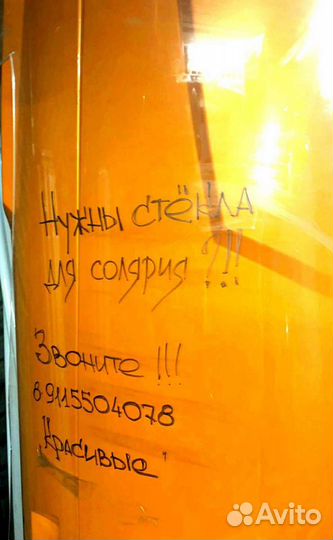 Нужны стёкла
для солярия ?!!
Звоните !!!
89115504078
"Красивые"
Avito